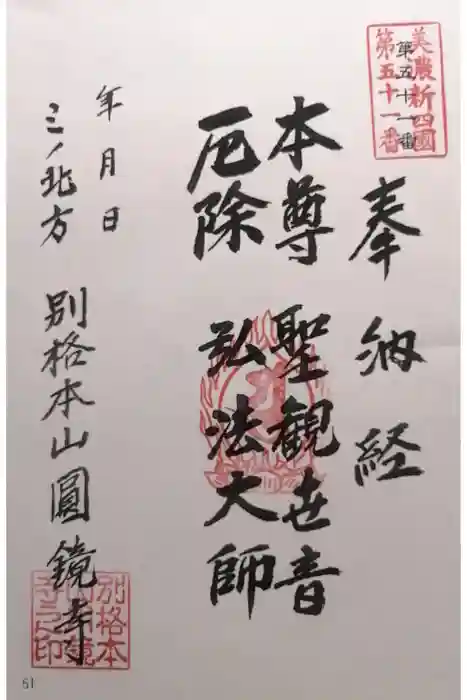 美濃新四國
第五十一番
第五十一番
奉納経
本尊 聖観世音
厄除 弘法大師
年 月 日
三ノ北方 別格本山圓鏡寺
別格本
山圓鏡
寺之印
61